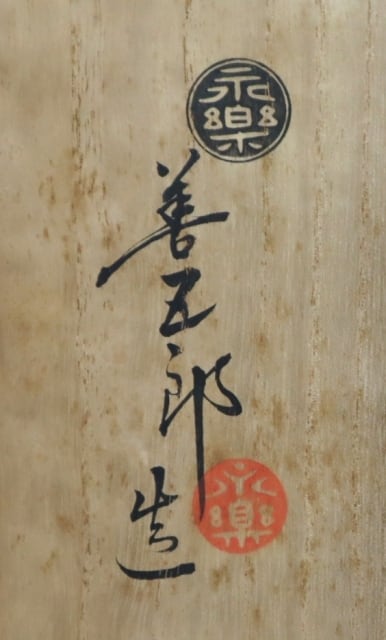 永樂
善五郎造
永樂